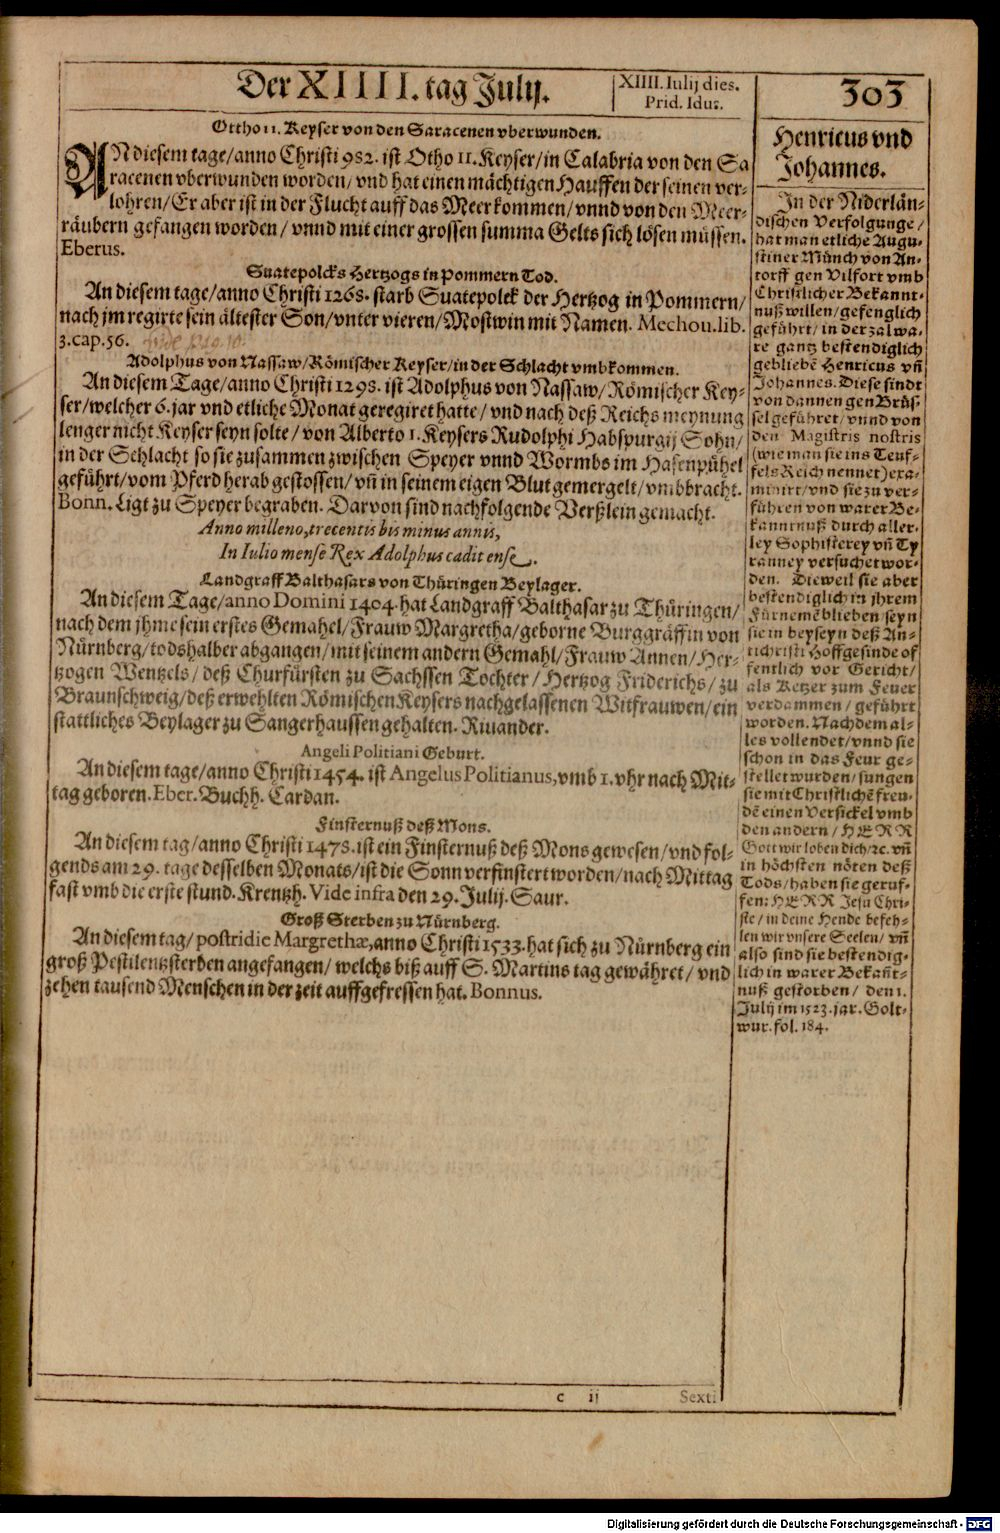 Der XIIII. tag Julij.
XIIII. Iulij dies.
Prid. Idus.
303
Ottho 11. Keyser von den Saracenen vberwunden.
AN diesem tage/anno Christi 982. ist Otho II. Keyser/in Calabria von den Sa
racenen vberwunden worden/ vnd hat einen mächtigen Hauffen der seinen ver-
lohren/Er aber ist in der Flucht auff das Meer kommen/vnnd von den Meer-
räubern gefangen worden/ vnnd mit einer grossen summa Gelts sich lösen müssen.
Eberus.
Suatepolcks Hertzogs in Pommern Tod.
An diesem tage/anno Christi 1268. starb Suatepolck der Hertzog in Pommern/
nach jm regirte sein ältester Son/vnter vieren/Mostwin mit Namen. Mechou.lib.
3.cap.56.
Adolphus von Nassaw/Römischer Keyser/in der Schlacht vmbkommen.
An diesem Tage/anno Christi 1298. ist Adolphus von Nassaw/Römischer Key-
ser/welcher 6.jar vnd etliche Monat geregiret hatte/ vnd nach deß Reichs meynung
lenger nicht Keyser seyn solte/ von Alberto 1. Keysers Rudolphi Habspurgij Sohn/
in der Schlacht so sie zusammen zwischen Speyer vnnd Wormbs im Hasenpühel
geführt/vom Pferd herab gestossen/ vñ in seinem eigen Blut gemergelt/vmbbracht.
Bonn. Ligt zu Speyer begraben. Darvon sind nachfolgende Verßlein gemacht.
Anno milleno,trecentis bis minus annis,
In Iulio mense Rex Adolphus cadit ense.
Landgraff Balthasars von Thüringen Beylager.
An diesem Tage/anno Domini 1404. hat Landgraff Balthasar zu Thüringen/
nach dem jhme sein erstes Gemahel/Frauw Margretha/geborne Burggräffin von
Nürnberg/todshalber abgangen/mit seinem andern Gemahl/Frauw Annen/Her-
tzogen Wentzels/ deß Churfürsten zu Sachssen Tochter/Hertzog Friderichs/zu
Braunschweig/deß erwehlten Römischen Keysers nachgelassenen Witfrauwen/ein
stattliches Beylager zu Sangerhaussen gehalten. Riuander.
Angeli Politiani Geburt.
An diesem tage/anno Christi 1454. ist Angelus Politianus,vmb 1.vhr nach Mit-
tag geboren.Eber.Buchh. Cardan.
Finsternuß deß Mons.
An diesem tag/anno Christi 1478. ist ein Finsternuß deß Mons gewesen/vnd fol-
gends am 29. tage desselben Monats/ist die Sonn verfinstert worden/nach Mittag
fast vmb die erste stund. Krentzh. Vide infra den 29.Julij.Saur.
Groß Sterben zu Nürnberg.
An diesem tag/ postridie Margrethæ,anno Christi 1533.hat sich zu Nürnberg ein
groß Pestilentzsterben angefangen/ welchs biß auff S. Martins tag gewähret/ vnd
zehen tausend Menschen in der zeit auffgefressen hat. Bonnus.
Henricus vnd
Johannes.
In der Niderlän-
dischen Verfolgunge/
hat man etliche Augu-
stiner Münch von An-
torff gen Vilfort vmb
Christlicher Bekannt-
nuß willen/gefenglich
geführt/in der zal wa-
re gantz bestendiglich
gebliebẽ Henricus vñ
Johannes. Diese sindt
von dannen gen Brüs-
sel geführet/vnnd von
den Magistris nostris
(wie man sie ins Teuf-
fels Reich nennet) exa-
minirt/vnd sie zu ver-
führen von warer Be-
kanntnuß durch aller-
ley Sophisterey vñ Ty
ranney versuchet wor-
den. Dieweil sie aber
bestendiglich in jhrem
Fürnemẽ blieben/seyn
sie in beyseyn deß An-
tichristi Hoffgesinde of
fentlich vor Gericht/
als Ketzer zum Feuer
verdammen/ geführt
worden. Nachdem al-
les vollendet/vnnd sie
schon in das Feur ge-
stellet wurden/sungen
sie mit Christlichẽ freu-
dẽ einen Versickel vmb
den andern/HERR
Gott wir loben dich/ꝛc. vñ
in höchsten nöten deß
Tods/haben sie geruf-
fen: HERR Jesu Chri-
ste/in deine Hende befeh-
len wir vnsere Seelen/ vñ
also sind sie bestendig-
lich in warer Bekañt-
nuß gestorben/ den 1.
Julij im 1523.jar. Golt-
wur. fol. 184.
c ij
Sexti
Digitalisierung gefördert durch die Deutsche Forschungsgemeinschaft - DFG